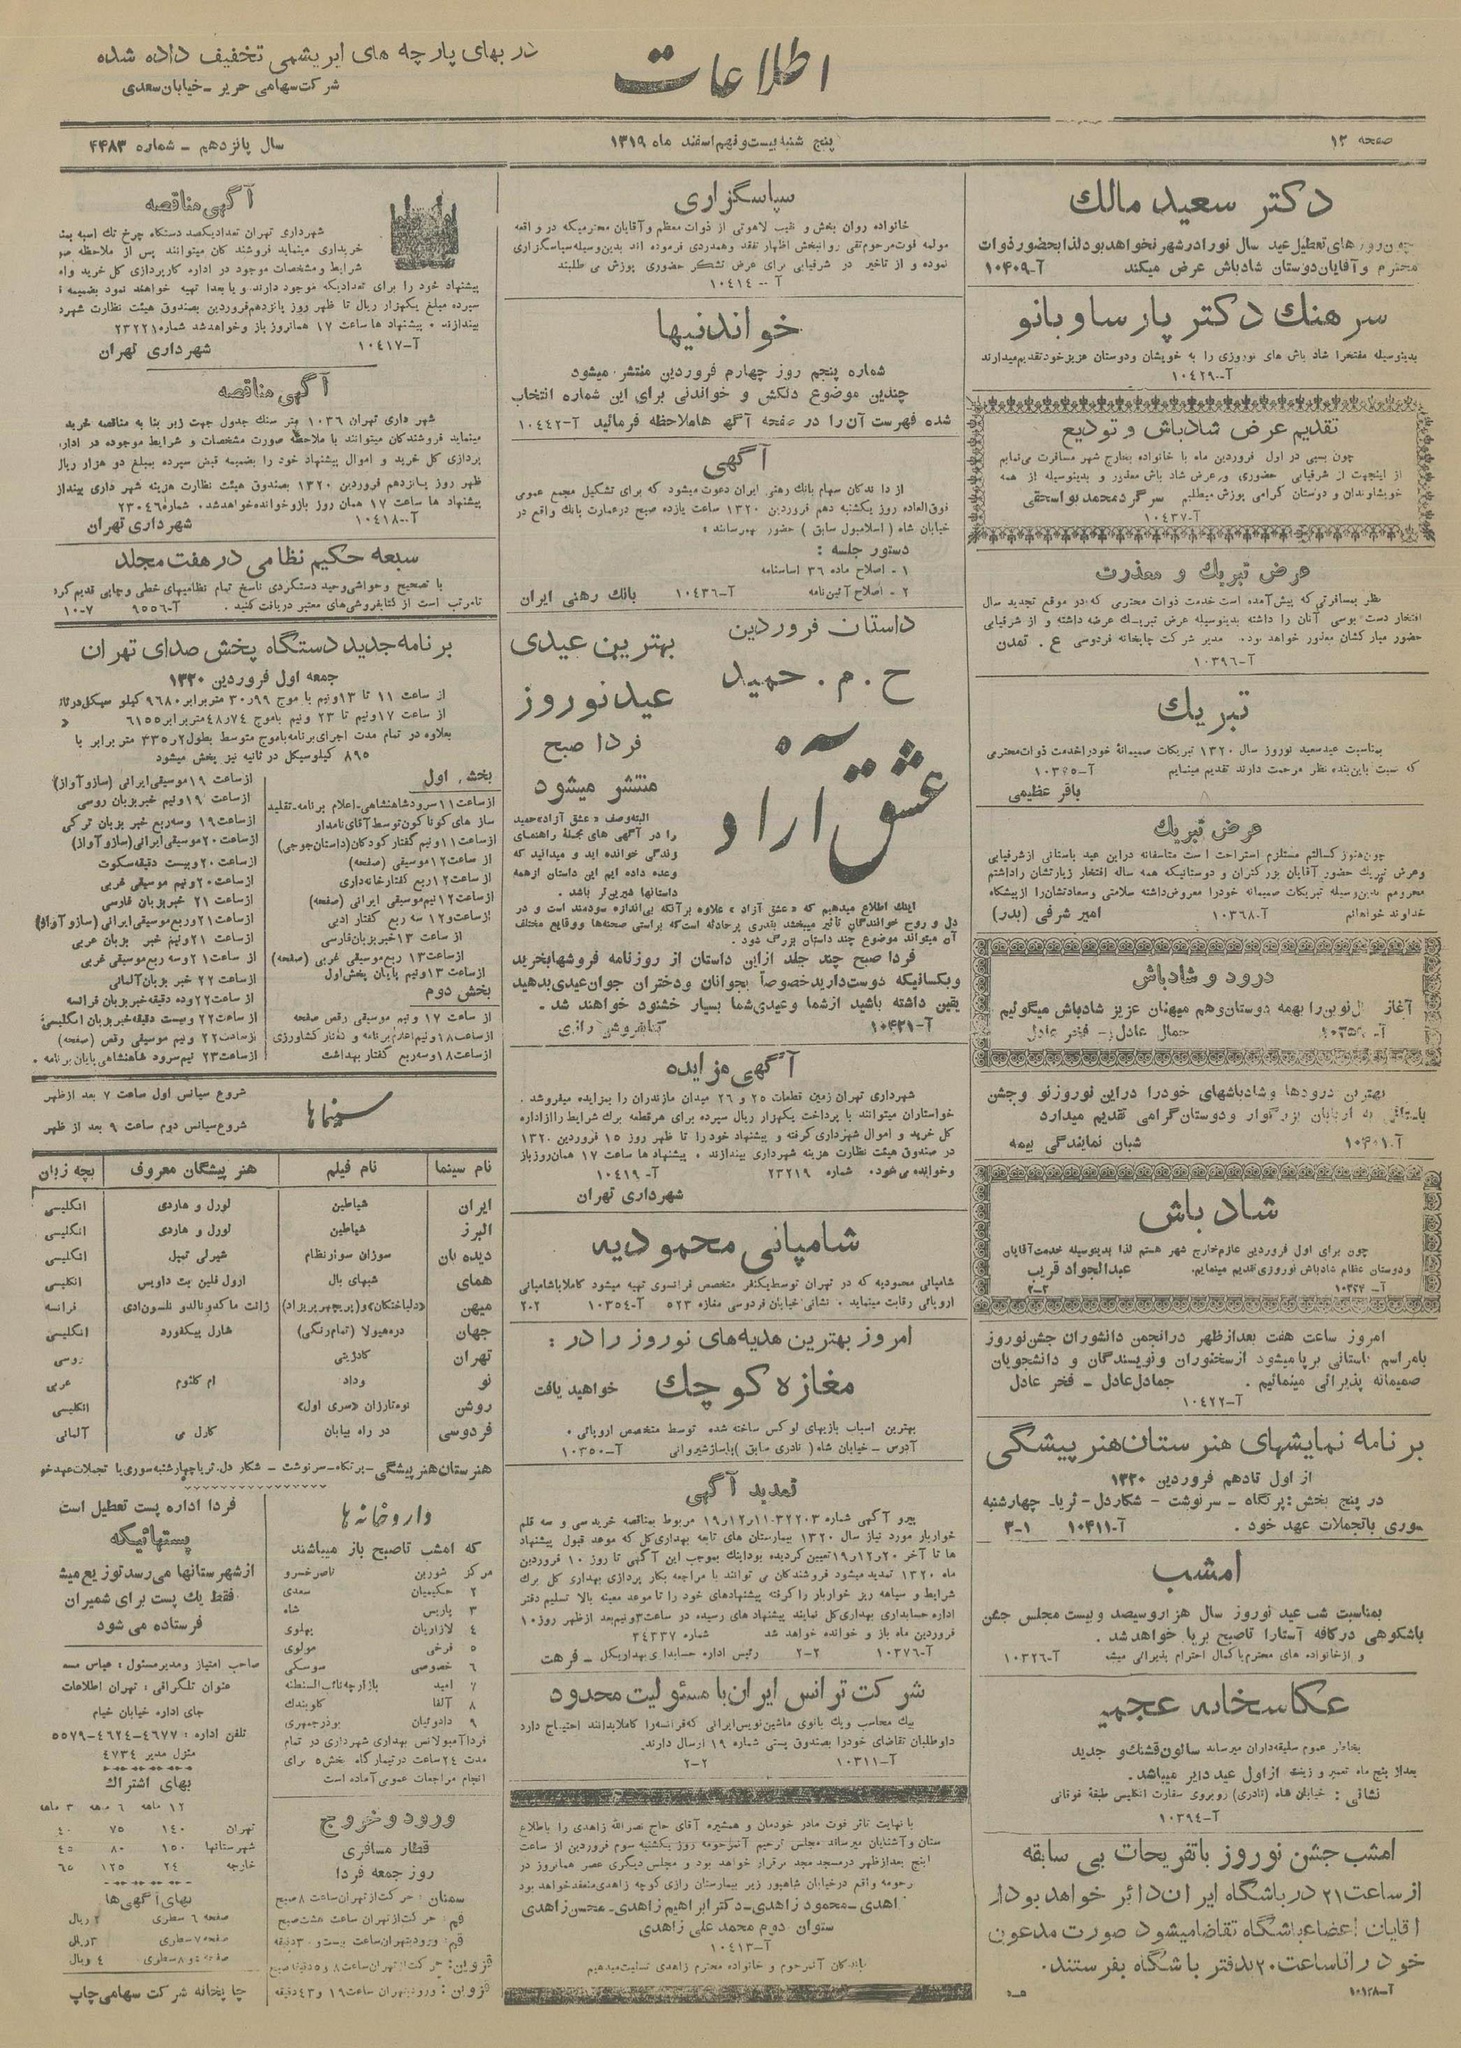 در بهای پارچه های ابریشمی تخفیف داده شده
شرکت سهامی حریر – خیابان سعدی
اطلاعات
صفحه ۱۲
پنج شنبه بیست و نهم اسفند ماه ۱۳۱۹
سال پانزدهم – شماره ۴۴۸۳
دکتر سعید مالك
چون روزهای تعطیل عید سال نو را در شهر نخواهد بود لذا بحضور ذوات
محترم و آقایان دوستان شادباش عرض میکند آ–۱۰۴۰۹
سرهنك دکتر پارسا و بانو
بدینوسیله مفتخرا شاد باش های نوروزی را به خویشان ودوستان عزیز خود تقدیم میدارند
آ–۱۰۴۲۹
تقدیم عرض شادباش و تودیع
چون بسی در اول فروردین ماه با خانواده بخارج شهر مسافرت می‌نمایم
از اینجهت از شرفیابی حضوری وعرض شاد باش معذور و بدینوسیله از همه
خویشاوندان و دوستان گرامی پوزش میطلبم سرگرد محمد بواسحقی
آ–۱۰۴۳۷
عرض تبریك و معذرت
نظر بمسافرتی که پیش آمده است خدمت ذوات محترمی که در موقع تجدید سال
افتخار دست بوسی آنان را داشته بدینوسیله عرض تبریك عرضه داشته و از شرفیابی
حضور مبارکشان معذور خواهد بود. مدیر شرکت چاپخانه فردوسی ع. تمدن
آ–۱۰۳۹۶
تبریك
بمناسبت عید سعید نوروز سال ۱۳۲۰ تبریکات صمیمانهٔ خود را خدمت ذوات محترمی
که نسبت باین بنده نظر مرحمت دارند تقدیم مینمایم
باقر عظیمی
عرض تبریك
چون هنوز کسالتم مستلزم استراحت است متاسفانه دراین عید باستانی از شرفیابی
وعرض تبریك حضور آقایان بزرگتران و دوستانیکه همه ساله افتخار زیارتشان راداشتم
محرومم بدین وسیله تبریکات صمیمانه خودرا معروض داشته سلامتی وسعادتشان را از پیشگاه
خداوند خواهانم آ–۱۰۳۶۸ امیر شرفی (بدر)
درود و شادباش
آغاز سال نوین را بهمه دوستان وهم میهنان عزیز شادباش میگوئیم
جمال عادل – فخر عادل
بهترین درودها وشادباشهای خودرا دراین نوروزنو وجشن
باستانی به اربابان بزرگوار ودوستان گرامی تقدیم میدارد
شبان نمایندگی بیمه
شاد باش
چون برای اول فروردین عازم خارج شهر هستم لذا بدینوسیله خدمت آقایان
ودوستان عظام شادباش نوروزی تقدیم مینمایم. عبدالجواد قریب
امروز ساعت هفت بعدازظهر درانجمن دانشوران جشن نوروز
بامراسم باستانی برپا میشود از سخنوران ونویسندگان و دانشجویان
صمیمانه پذیرائی مینمائیم. جمادل عادل – فخر عادل
آ–۱۰۴۲۲
برنامه نمایشهای هنرستان هنرپیشگی
از اول تا دهم فروردین ۱۳۲۰
در پنج بخش: پرتگاه – سرنوشت – شکاردل – ثریا – چهارشنبه
سوری باتجملات عهد خود. آ–۱۰۴۱۱ ۳–۱
امشب
بمناسبت شب عید نوروز سال هزار وسیصد و بیست مجلس جشن
باشکوهی درکافه آستارا تاصبح برپا خواهد شد.
و از خانواده های محترم باکمال احترام پذیرائی میشود آ–۱۰۳۲۶
عکاسخانه عجمی
بخاطر عموم سلیقه‌داران میرساند سالون قشنك و جدید
بعداز پنج ماه تعمیر و زینت از اول عید دایر میباشد.
نشانی: خیابان شاه (نادری) روبروی سفارت انگلیس طبقه فوقانی
آ–۱۰۳۹۴
امشب جشن نوروز با تفریحات بی سابقه
از ساعت ۲۱ در باشگاه ایران دائر خواهد بود از
آقایان اعضاء باشگاه تقاضا میشود صورت مدعوین
خود را تا ساعت ۲۰ بدفتر باشگاه بفرستند.
سپاسگزاری
خانواده روان بخش و نقیب لاهوتی از ذوات معظم وآقایان محترمیکه در واقعه
مولمه فوت مرحوم تقی روانبخش اظهار تفقد وهمدردی فرموده اند بدین‌وسیله سپاسگزاری
نموده و از تاخیر در شرفیابی برای عرض تشکر حضوری پوزش می طلبند
آ–۱۰۴۱۴
خواندنیها
شماره پنجم روز چهارم فروردین منتشر میشود
چندین موضوع دلکش و خواندنی برای این شماره انتخاب
شده فهرست آن را در صفحه آگهی ها ملاحظه فرمائید آ–۱۰۴۴۲
آگهی
از دارندگان سهام بانك رهنی ایران دعوت میشود که برای تشکیل مجمع عمومی
فوق‌العاده روز یکشنبه دهم فروردین ۱۳۲۰ ساعت یازده صبح درعمارت بانك واقع در
خیابان شاه (اسلامبول سابق) حضور بهم رسانند:
دستور جلسه:
۱ – اصلاح ماده ۳۶ اساسنامه
۲ – اصلاح آئین‌نامه آ–۱۰۴۳۶ بانك رهنی ایران
داستان فروردین
ح . م . حمید
عشق آزاد
بهترین عیدی
عید نوروز
فردا صبح
منتشر میشود
البته وصف «عشق آزاد» حمید
را در آگهی های مجله راهنمای
زندگی خوانده اید و میدانید که
وعده داده ایم این داستان از همه
داستانها شیرین‌تر باشد.
اینك اطلاع میدهیم که «عشق آزاد» علاوه برآنکه بی‌اندازه سودمند است و در
دل و روح خوانندگان تأثیر میبخشد بقدری پرحادثه است که براستی صحنه‌ها ووقایع مختلف
آن میتواند موضوع چند داستان بزرگ شود.
فردا صبح چند جلد ازاین داستان از روزنامه فروشها بخرید
وبکسانیکه دوست دارید خصوصاً بجوانان ودختران جوان عیدی بدهید
یقین داشته باشید ازشما وعیدی شما بسیار خشنود خواهند شد.
آ–۱۰۴۲۱ کتابفروشی رازی
آگهی مزایده
شهرداری تهران زمین قطعات ۲۵ و ۲۶ میدان مازندران را بمزایده میفروشد.
خواستاران میتوانند با پرداخت یکهزار ریال سپرده برای هر قطعه برك شرایط را از اداره
کل خرید و اموال شهرداری گرفته و پیشنهاد خود را تا ظهر روز ۱۵ فروردین ۱۳۲۰
در صندوق هیئت نظارت هزینه شهرداری بیندازند. پیشنهاد ها ساعت ۱۷ همان روز باز
وخوانده می‌شود. شماره ۲۳۲۱۹ آ–۱۰۴۱۹
شهرداری تهران
شامپانی محمودیه
شامپانی محمودیه که در تهران توسط یکنفر متخصص فرانسوی تهیه میشود کاملا باشامپانی
اروپائی رقابت مینماید. نشانی: خیابان فردوسی مغازه ۵۲۳ آ–۱۰۳۵۴ ۲۰۲
امروز بهترین هدیه‌های نوروز را در:
مغازه کوچك خواهید یافت
بهترین اسباب بازیهای لوکس ساخته شده توسط متخصص اروپائی.
آدرس – خیابان شاه (نادری سابق) پاساژ شیروانی آ–۱۰۳۵۰
تمدید آگهی
پیرو آگهی شماره ۳۲۲۰۳–۱۹/۱۲/۱۱ مربوط بمناقصه خرید سی و سه قلم
خواربار مورد نیاز سال ۱۳۲۰ بیمارستان های تابعه بهداری کل که موعد قبول پیشنهاد
ها تا آخر ۱۹/۱۲/۲۰ تعیین گردیده بود اینك بموجب این آگهی تا روز ۱۰ فروردین
ماه ۱۳۲۰ تمدید میشود فروشندگان می توانند با مراجعه بکار پردازی بهداری کل برك
شرایط و سیاهه ریز خواربار را گرفته پیشنهادهای خود را تا موعد معینه بالا تسلیم دفتر
اداره حسابداری بهداری کل نمایند پیشنهاد های رسیده در ساعت ۳ و نیم بعد از ظهر روز ۱۰
فروردین ماه باز و خوانده خواهد شد شماره ۳۴۳۳۷
آ–۱۰۳۷۶ ۲–۲ رئیس اداره حسابداری بهداری کل – فرهت
شرکت ترانس ایران با مسئولیت محدود
بیك محاسب ویك بانوی ماشین نویس ایرانی که فرانسه را کاملا بدانند احتیاج دارد
داوطلبان تقاضای خودرا بصندوق پستی شماره ۱۹ ارسال دارند.
آ–۱۰۳۱۱ ۲–۲
با نهایت تاثر فوت مادر خودمان و همشیره آقای حاج نصرالله زاهدی را باطلاع
دوستان وآشنایان میرساند مجلس ترحیم آنمرحومه روز یکشنبه سوم فروردین از ساعت
پنج بعدازظهر درمسجد مجد برقرار خواهد بود و مجلس دیگری عصر همانروز در
مرحومه واقع درخیابان شاهپور زیر بیمارستان رازی کوچه زاهدی منعقد خواهد بود
زاهدی – محمود زاهدی – دکتر ابراهیم زاهدی – محسن زاهدی
ستوان دوم محمد علی زاهدی
آ–۱۰۴۱۳
بازماندگان آنمرحوم و خانواده محترم زاهدی تسلیت میدهیم
آگهی مناقصه
شهرداری تهران تعداد یکصد دستگاه چرخ تك اسبه
خریداری مینماید فروشندگان میتوانند پس از ملاحظه
شرایط ومشخصات موجود در اداره کارپردازی کل خرید
پیشنهاد خود را برای تعدادیکه موجود دارند ویا بعدا تهیه خواهند نمود بضمیمه
سپرده مبلغ یکهزار ریال تا ظهر روز پانزدهم فروردین بصندوق هیئت نظارت
بیندازند. پیشنهاد ها ساعت ۱۷ همانروز باز وخواهد شد شماره ۲۳۲۲۱
آ–۱۰۴۱۷ شهرداری تهران
آگهی مناقصه
شهر داری تهران ۱۰۳۶ متر سنك جدول جهت زیر بنا به مناقصه خرید
مینماید فروشندگان میتوانند با ملاحظه صورت مشخصات و شرایط موجوده در
پردازی کل خرید و اموال پیشنهاد خود را بضمیمه قبض سپرده بمبلغ دو هزار ریال
ظهر روز پانزدهم فروردین ۱۳۲۰ بصندوق هیئت نظارت هزینه شهر داری
پیشنهاد ها ساعت ۱۷ همان روز باز وخوانده خواهد شد. شماره ۲۳۰۴۶
آ–۱۰۴۱۸ شهرداری تهران
سبعه حکیم نظامی در هفت مجلد
با تصحیح وحواشی وحید دستگردی ناسخ تمام نظامیهای خطی وچاپی قدیم
نامرتب است از کتابفروشی‌های معتبر دریافت کنید. آ–۹۵۵۶ ۱۰–۷
برنامه جدید دستگاه پخش صدای تهران
جمعه اول فروردین ۱۳۲۰
از ساعت ۱۱ تا ۱۳ ونیم با موج ۳۰٫۹۹ متر برابر ۹۶۸۰ کیلو سیکل در
از ساعت ۱۷ ونیم تا ۲۳ ونیم باموج ۴۸٫۷۴ متر برابر ۶۱۵۵
بعلاوه در تمام مدت اجرای برنامه باموج متوسط بطول ۳۳۵٫۲ متر برابر با
۸۹۵ کیلوسیکل در ثانیه نیز پخش میشود
بخش اول
از ساعت ۱۱ سرود شاهنشاهی – اعلام برنامه – تقلید
ساز های گوناگون توسط آقای نامدار
از ساعت ۱۱ ونیم گفتار کودکان (داستان جوجی)
از ساعت ۱۲ موسیقی (صفحه)
از ساعت ۱۲ ربع گفتار خانه‌داری
از ساعت ۱۲ نیم موسیقی ایرانی (صفحه)
از ساعت ۱۲ و سه ربع گفتار ادبی
از ساعت ۱۳ خبر بزبان فارسی
از ساعت ۱۳ ربع موسیقی غربی (صفحه)
از ساعت ۱۳ ونیم پایان بخش اول
بخش دوم
از ساعت ۱۷ ونیم موسیقی رقص صفحه
از ساعت ۱۸ ونیم اعلام برنامه و گفتار کشاورزی
از ساعت ۱۸ وسه ربع گفتار بهداشت
از ساعت ۱۹ موسیقی ایرانی (سازو آواز)
از ساعت ۱۹ ونیم خبر بزبان روسی
از ساعت ۱۹ وسه ربع خبر بزبان ترکی
از ساعت ۲۰ موسیقی ایرانی (سازو آواز)
از ساعت ۲۰ وبیست دقیقه سکوت
از ساعت ۲۰ ونیم موسیقی غربی
از ساعت ۲۱ خبر بزبان فارسی
از ساعت ۲۱ وربع موسیقی ایرانی (سازو آواز)
از ساعت ۲۱ ونیم خبر بزبان عربی
از ساعت ۲۱ وسه ربع موسیقی غربی
از ساعت ۲۲ خبر بزبان آلمانی
از ساعت ۲۲ وده دقیقه خبر بزبان فرانسه
از ساعت ۲۲ وبیست دقیقه خبر بزبان انگلیسی
از ساعت ۲۲ ونیم موسیقی رقص (صفحه)
از ساعت ۲۳ نیم سرود شاهنشاهی پایان برنامه.
سینماها
شروع سیانس اول ساعت ۷ بعد ازظهر
شروع سیانس دوم ساعت ۹ بعد از ظهر
نام سینما نام فیلم هنر پیشگان معروف بچه زبان
ایران شیاطین لورل و هاردی انگلیسی
البرز شیاطین لورل و هاردی انگلیسی
دیده بان سوزان سوارنظام شیرلی تمپل انگلیسی
همای شبهای بال ارول فلین بت داویس انگلیسی
میهن «دلباختگان» و (پریچهر پریزاد) ژانت ماکدونالدو نلسون ادی فرانسه
جهان دره هیولا (تمام رنگی) شارل بیکفورد انگلیسی
تهران روسی
نو وداد ام کلثوم عربی
روشن نوه تارزان «سری اول» انگلیسی
فردوسی در راه بیابان کارل می آلمانی
هنرستان هنرپیشگی – پرتگاه – سرنوشت – شکار دل. ثریا چهارشنبه سوری با تجملات عهد خود
داروخانه ها
که امشب تاصبح باز میباشند
مرکز شورین ناصر خسرو
۲ حکیمیان سعدی
۳ پاریس شاه
۴ لازاریان پهلوی
۵ فرخی مولوی
۶ خصوصی موسکی
۷ امید بازارچه نائب السلطنه
۸ آلفا کاوبندك
۹ دادوئیان بوذرجمهری
فردا آمبولانس بهداری شهرداری در تمام
مدت ۲۴ ساعت درتیمارگاه بخش ۵ برای
انجام مراجعات عمومی آماده است
ورود و خروج
قطار مسافری
روز جمعه فردا
سمنان: حرکت از تهران ساعت ۸ صبح
قم: حرکت از تهران ساعت هشت صبح
قم: ورود بتهران ساعت بیست و ۳۰ دقیقه
قزوین: حرکت از تهران ساعت ۸ و ۵ دقیقه صبح
قزوین: ورود بتهران ساعت ۱۹ و ۴۳ دقیقه
فردا اداره پست تعطیل است
پستهائیکه
از شهرستانها می‌رسد توزیع
فقط یك پست برای شمیران
فرستاده می شود
صاحب امتیاز ومدیر مسئول: عباس
عنوان تلگرافی: تهران اطلاعات
جای اداره خیابان خیام
تلفن اداره: ۴۶۷۷–۴۶۲۴–۵۵۷۹
منزل مدیر ۴۷۳۴
بهای اشتراك
۱۲ ماهه ۶ ماهه ۳ ماهه
تهران ۱۴۰ ۷۵ ۴۰
شهرستانها ۱۵۰ ۸۰ ۴۵
خارجه ۲۴ ۱۲۵ ۶۵
بهای آگهی‌ها
صفحه ۶ سطری ۲ ریال
صفحه ۷ سطری ۳ ریال
صفحه دو ۸ سطری ۴ ریال
چاپخانه شرکت سهامی چاپ